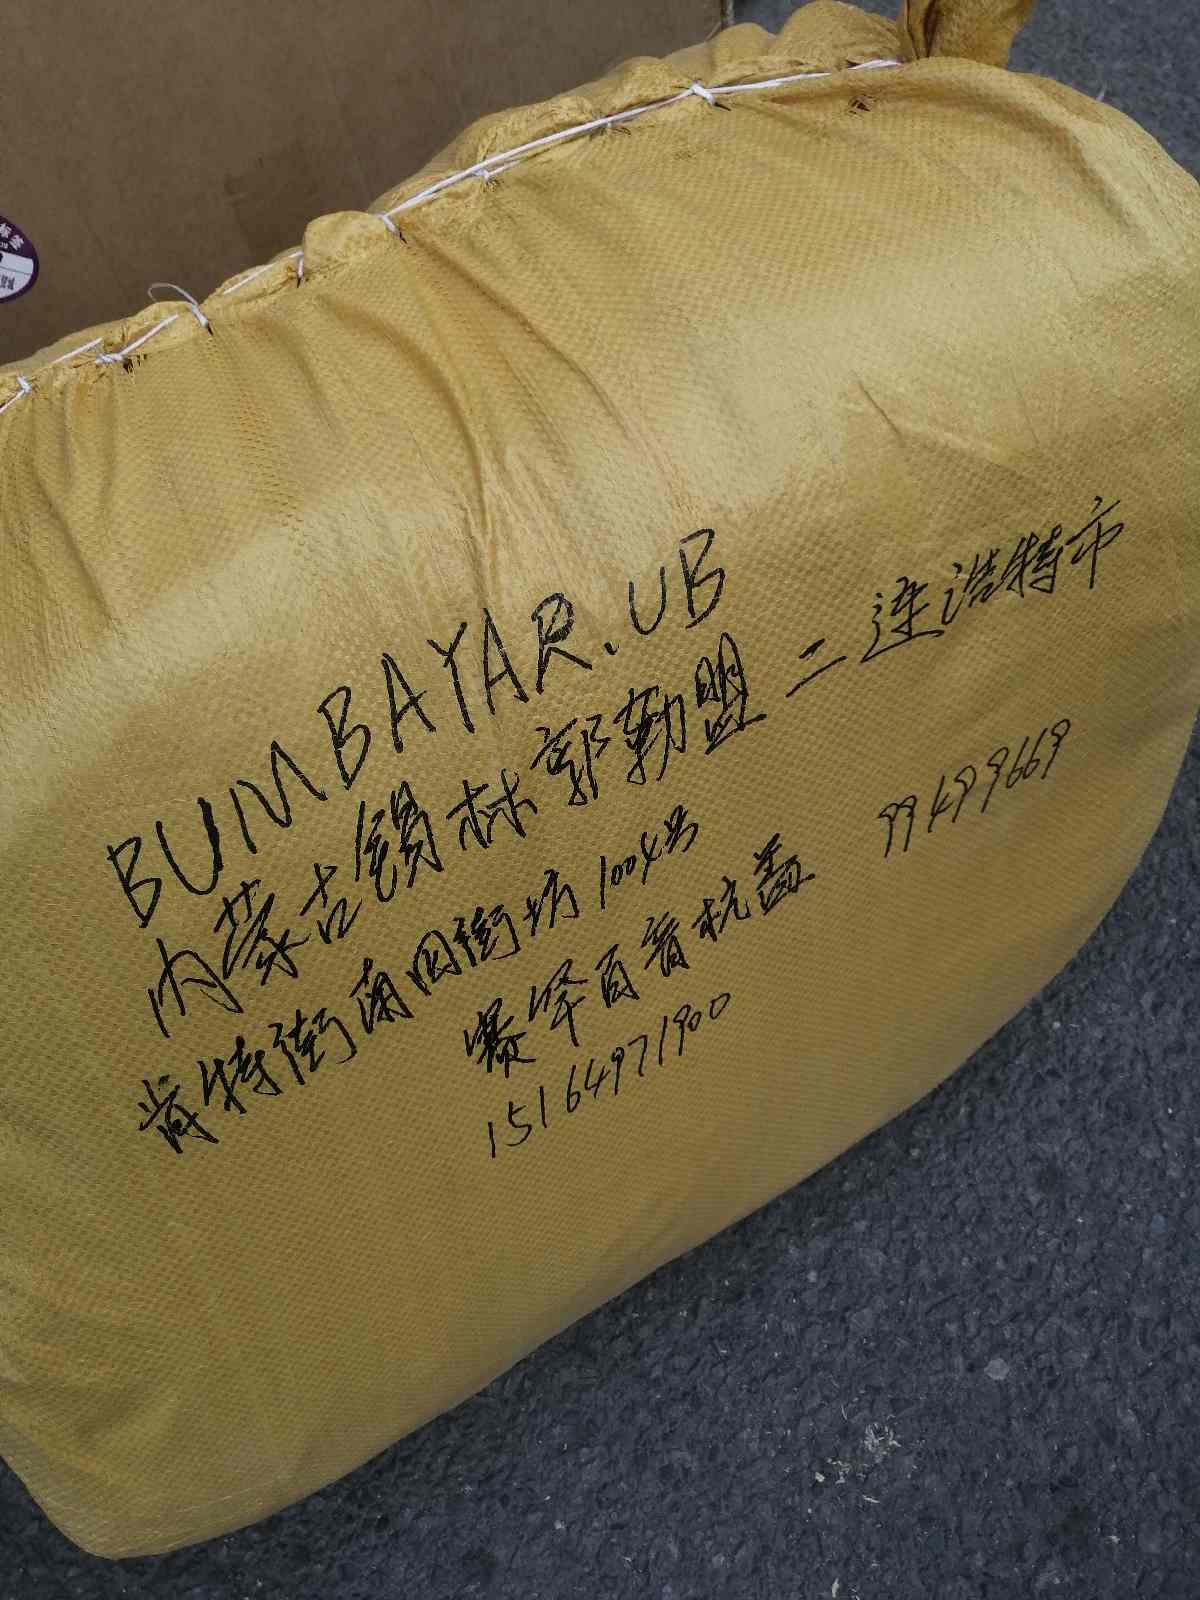 BUMBAYAR.UB
内蒙古锡林郭勒盟 二连浩特市
肯特街南四街坊1004号
赛罕百音杭盖 99499669
15164971900
标签